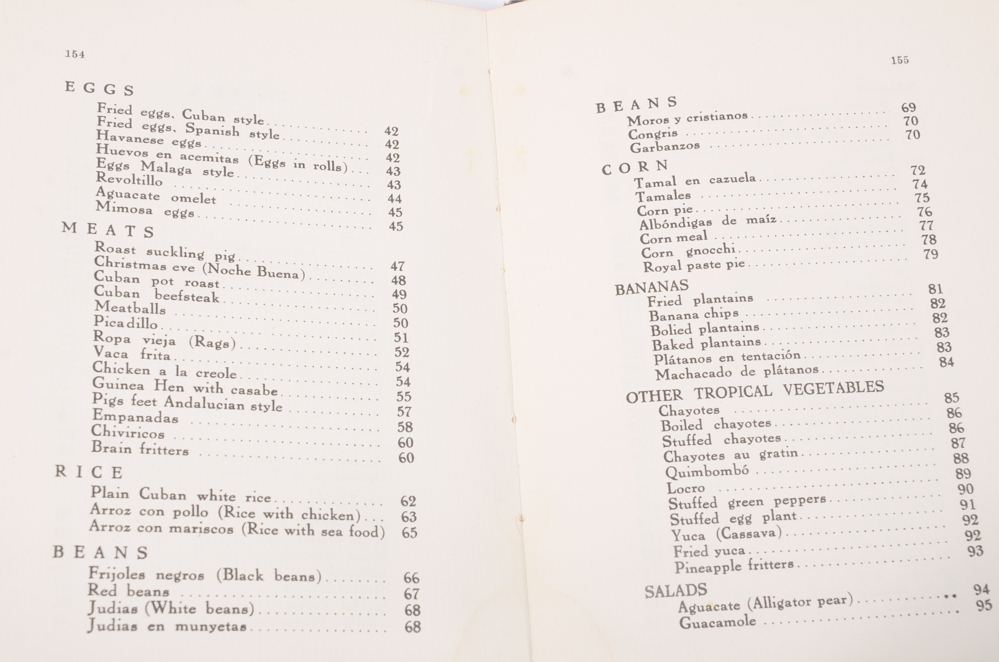 154
EGGS
Fried eggs, Cuban style 42
Fried eggs, Spanish style 42
Havanese eggs 42
Huevos en acemitas (Eggs in rolls) 43
Eggs Malaga style 43
Revoltillo 44
Aguacate omelet 45
Mimosa eggs 45
MEATS
Roast suckling pig 47
Christmas eve (Noche Buena) 48
Cuban pot roast 49
Cuban beefsteak 50
Meatballs 50
Picadillo 51
Ropa vieja (Rags) 52
Vaca frita 54
Chicken a la creole 54
Guinea Hen with casabe 55
Pigs feet Andalucian style 57
Empanadas 58
Chiviricos 60
Brain fritters 60
RICE
Plain Cuban white rice 62
Arroz con pollo (Rice with chicken) 63
Arroz con mariscos (Rice with sea food) 65
BEANS
Frijoles negros (Black beans) 66
Red beans 67
Judias (White beans) 68
Judias en munyetas 68
155
BEANS
Moros y cristianos 69
Congris 70
Garbanzos 70
CORN
Tamal en cazuela 72
Tamales 74
Corn pie 75
Albóndigas de maíz 76
Corn meal 77
Corn gnocchi 78
Royal paste pie 79
BANANAS
Fried plantains 81
Banana chips 82
Bolied plantains 82
Baked plantains 83
Plátanos en tentación 83
Machacado de plátanos 84
OTHER TROPICAL VEGETABLES
Chayotes 85
Boiled chayotes 86
Stuffed chayotes 86
Chayotes au gratin 87
Quimbombó 88
Locro 89
Stuffed green peppers 90
Stuffed egg plant 91
Yuca (Cassava) 92
Fried yuca 92
Pineapple fritters 93
SALADS
Aguacate (Alligator pear) 94
Guacamole 95